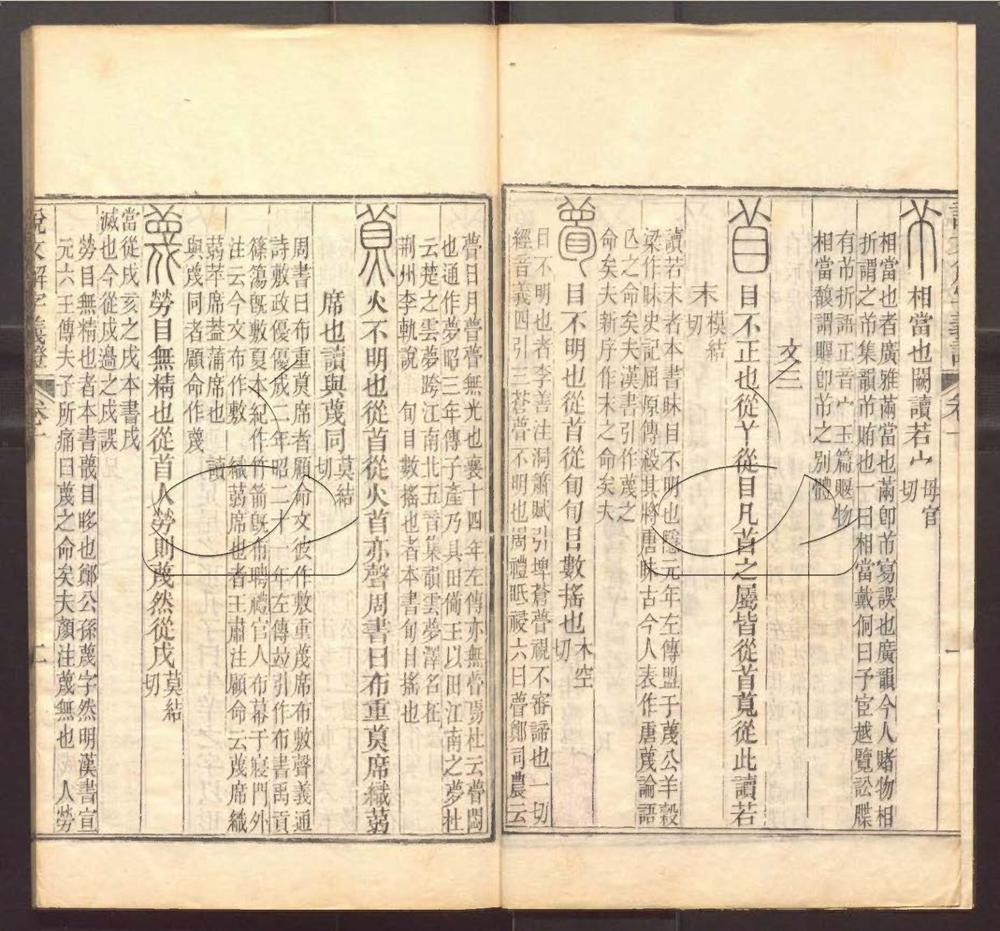 相當也闕讀若宀母官切
相當也者廣雅㒼當也㒼卽𦭝寫誤也廣韻今人賭物相
折謂之𦭝集韻𦭝賄也一曰相當戴侗曰予官越覽訟牒
有𦭝折語正音宀玉篇賑物
相當馥謂賑卽𦭝之別體
文三
𥄕目不正也從𦫳從目凡𥄕之屬皆從𥄕莧從此讀若
末模結切
讀若末者本書眜目不明也隱元年左傳盟于蔑公羊穀
梁作眜史記屈原傳殺其將唐眜古今人表作唐蔑論語
亾之命矣夫漢書引作蔑之
命矣夫新序作末之命矣夫
瞢目不明也從𥄕從旬旬目數搖也木空切
目不明也者李善注洞簫賦引埤蒼瞢視不審諦也一切
經音義四引三蒼瞢不明也周禮眡祲六曰瞢鄭司農云
瞢日月瞢瞢無光也襄十四年左傳亦無瞢焉杜云瞢悶
也通作夢昭三年傳子產乃具田備王以田江南之夢杜
云楚之雲夢跨江南北五音集韻雲夢澤名在
荆州李軌說 旬目數搖也者本書旬目搖也
𦱤火不明也從𥄕從火𥄕亦聲周書曰布重𦱤席織蒻
席也讀與蔑同莫結切
周書曰布重𦱤席者顧命文彼作敷重蔑席布敷聲義通
詩敷政優優成二年昭二十一年左傳竝引作布書禹貢
篠簜旣敷夏本紀作竹箭旣布聘禮官人布幕于寢門外
注云今文布作敷 織蒻席也者王肅注顧命云蔑席織
蒻苹席葢蒲席也 讀
與蔑同者顧命作蔑
蔑勞目無精也從𥄕人勞則蔑然從戍莫結切
當從戌亥之戌本書戌
滅也今從戍邊之戍誤
勞目無精也者本書䁾目眵也鄭公孫蔑字然明漢書宣
元六王傳夫子所痛曰蔑之命矣夫顏注蔑無也 人勞
說文解字義證 卷十 二